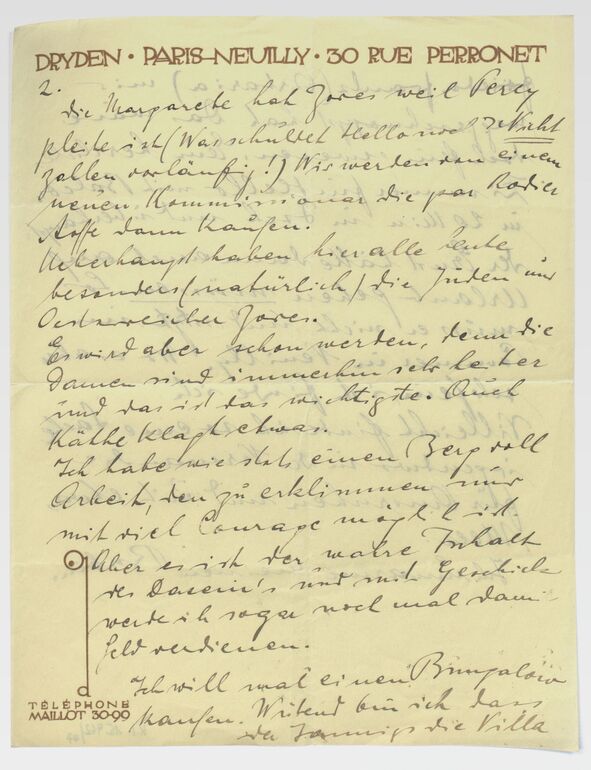 DRYDEN • PARIS-NEUILLY • 30 RUE PERRONET
2.
Die Margarete hat Zores weil Percy
pleite ist (Was schuldet Hello noch? Nicht
zallen vorläufig!) Wir werden von einem
neuen Kommissionar die par Rodier
Stoffe dann kaufen.
Ueberhaupt haben hier alle Leute
besonders (natürlich) die Juden und
Oestreicher Zores.
Es wird aber schon werden, denn die
Damen sind immerhin sehr heiter
und das ist das wichtigste. Auch
Käthe klagt etwas.
Ich habe wie stets einen Berg voll
Arbeit, den zu erklimmen nur
mit viel Courage möglich ist
Aber es ist der ware Inhalt
des Dasein's und mit Geschick
werde ich sogar noch mal damit
Geld verdienen.
Ich will mal einen Bungalow
kaufen. Wütend bin ich dass
der Jannings die Villa
TÉLÉPHONE
MAILLOT 30-90